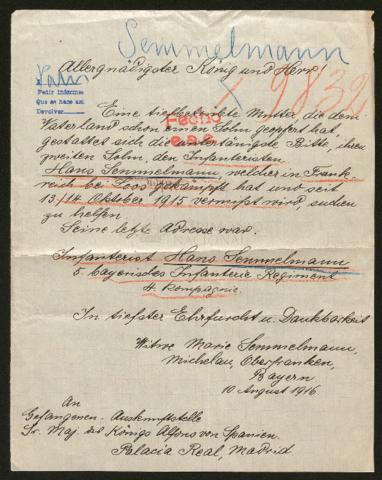 Semmelmann
Allergnädigster König und Herr!
X 9832
Pedir informe
Que se hace así
Devolver
Eine tiefbetrübte Mutter, die dem
Vaterland schon einen Sohn geopfert hat,
Fecho
gestattet sich die untertänigste Bitte, ihren
zweiten Sohn, den Infanteristen
Hans Semmelmann, welcher in Frank-
reich bei Loos gekämpft hat und seit
13/14 Oktober 1915 vermißt wird, suchen
zu helfen
Seine letzte Adresse war:
Infanterist Hans Semmelmann
5 bayerisches Infanterie Regiment
4 Kompagnie.
In tiefster Ehrfurcht u. Dankbarkeit
Witwe Marie Semmelmann,
Michelau, Oberfranken,
Bayern
10 August 1916
An
Gefangenen-Auskunftstelle
Sr. Maj. des Königs Alfons von Spanien.
Palacia Real, Madrid